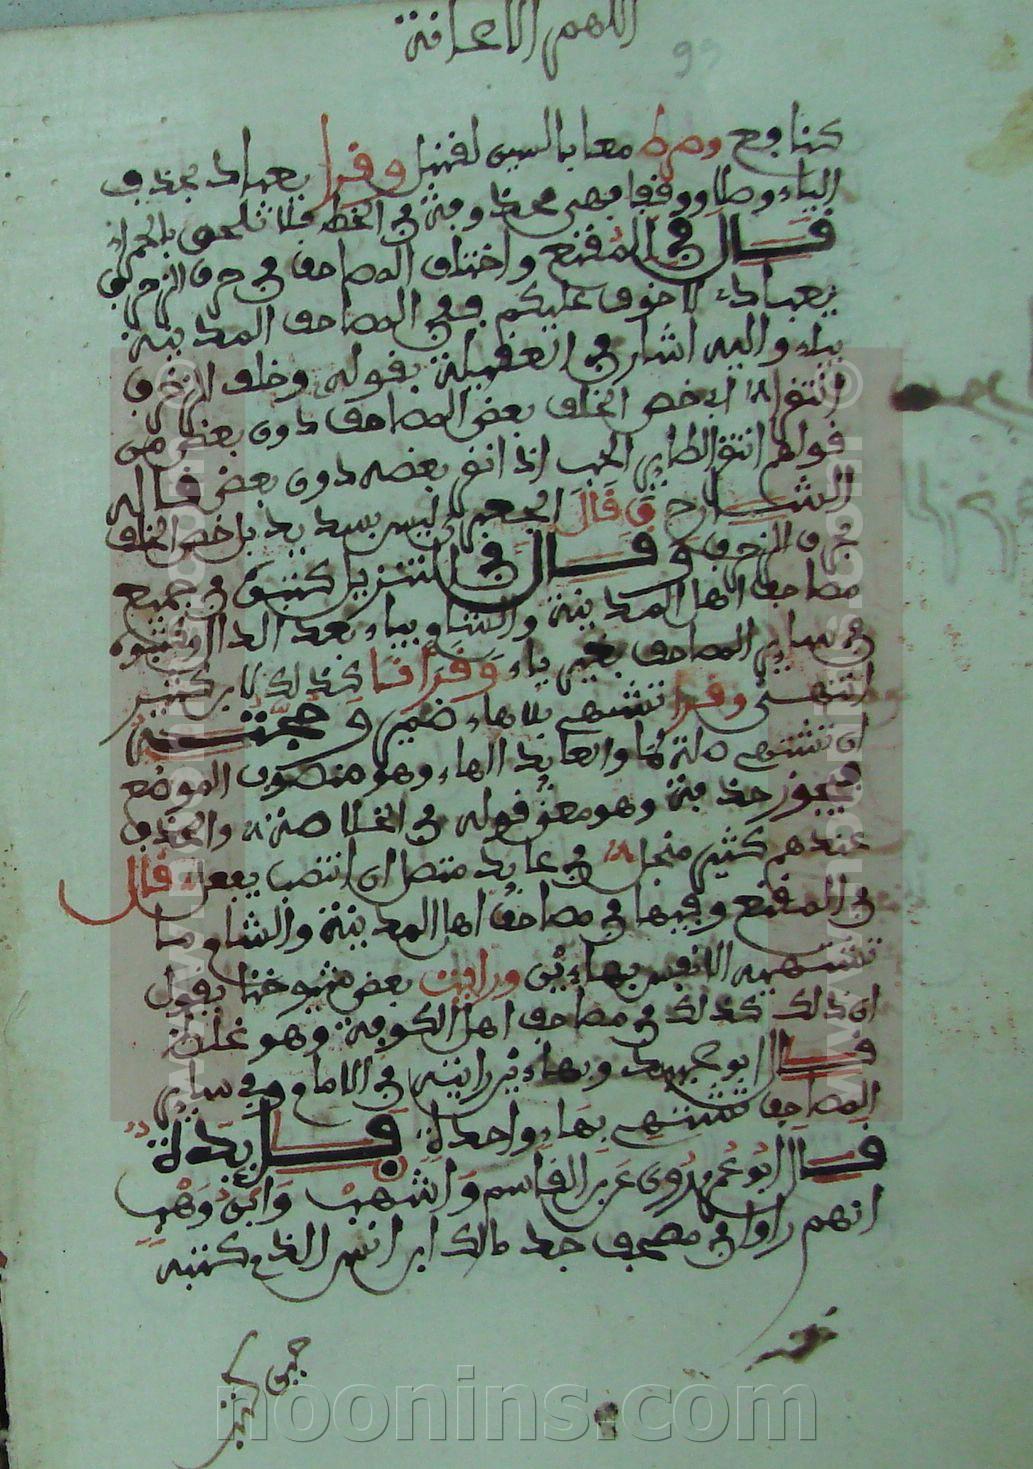 اللهم الاعانة
99
كنافع وصرط معا بالسين لقنبل وقرا يعباد بحذف
الياء وصلا ووقفا فهي محذوفة في الخط فلا تلحق بالحمراء
قال في المقنع واختلف المصاحف في حرف الزخرف
يعباد لا خوف عليكم ففي المصاحف المدينة
بياء واليه اشار في العقيلة بقوله وخلف الزخرف
انتقرا اي خص الخلف بعض المصاحف دون بعض من
قولهم انتقر الطاير الحب اذا انقى بعضه دون بعض قاله
الشارح قال الجعبري ليس بسديد بل خص الخلف
بحرف الزخرف وقال في التنزيل كتبوا في جميع
مصاحف اهل المدينة والشام بياء بعد الدال وكتبوه
في ساير المصاحف بغير ياء وقرانا كذلك لابن كثير
انتهى وقرا تشتهي بلا هاء ضمير وحجته
ان تشتهي صلة ما والعايد الهاء وهو منصوب الموضع
فيجوز حذفه وهو معنى قوله في الخلاصة والحذف
عندهم كثير منجلي في عايد متصل ان انتصب بفعل قال
في المقنع وفيها في مصاحف اهل المدينة والشام ما
تشتهيه الانفس بهاءين ورايت بعض شيوخنا يقول
ان ذلك كذلك في مصاحف اهل الكوفة وهو غلط
قال ابو عبيد وبهاءين رايته في الامام وفي ساير
المصاحف تشتهي بهاء واحدة فايدة
قال ابو عمرو روى عن ابن القاسم واشهب وابن وهب
انهم راوا في مصحف جد مالك ابن انس الذي كتبه
noonins.com
www.noonins.com ©
www.noonins.com ©